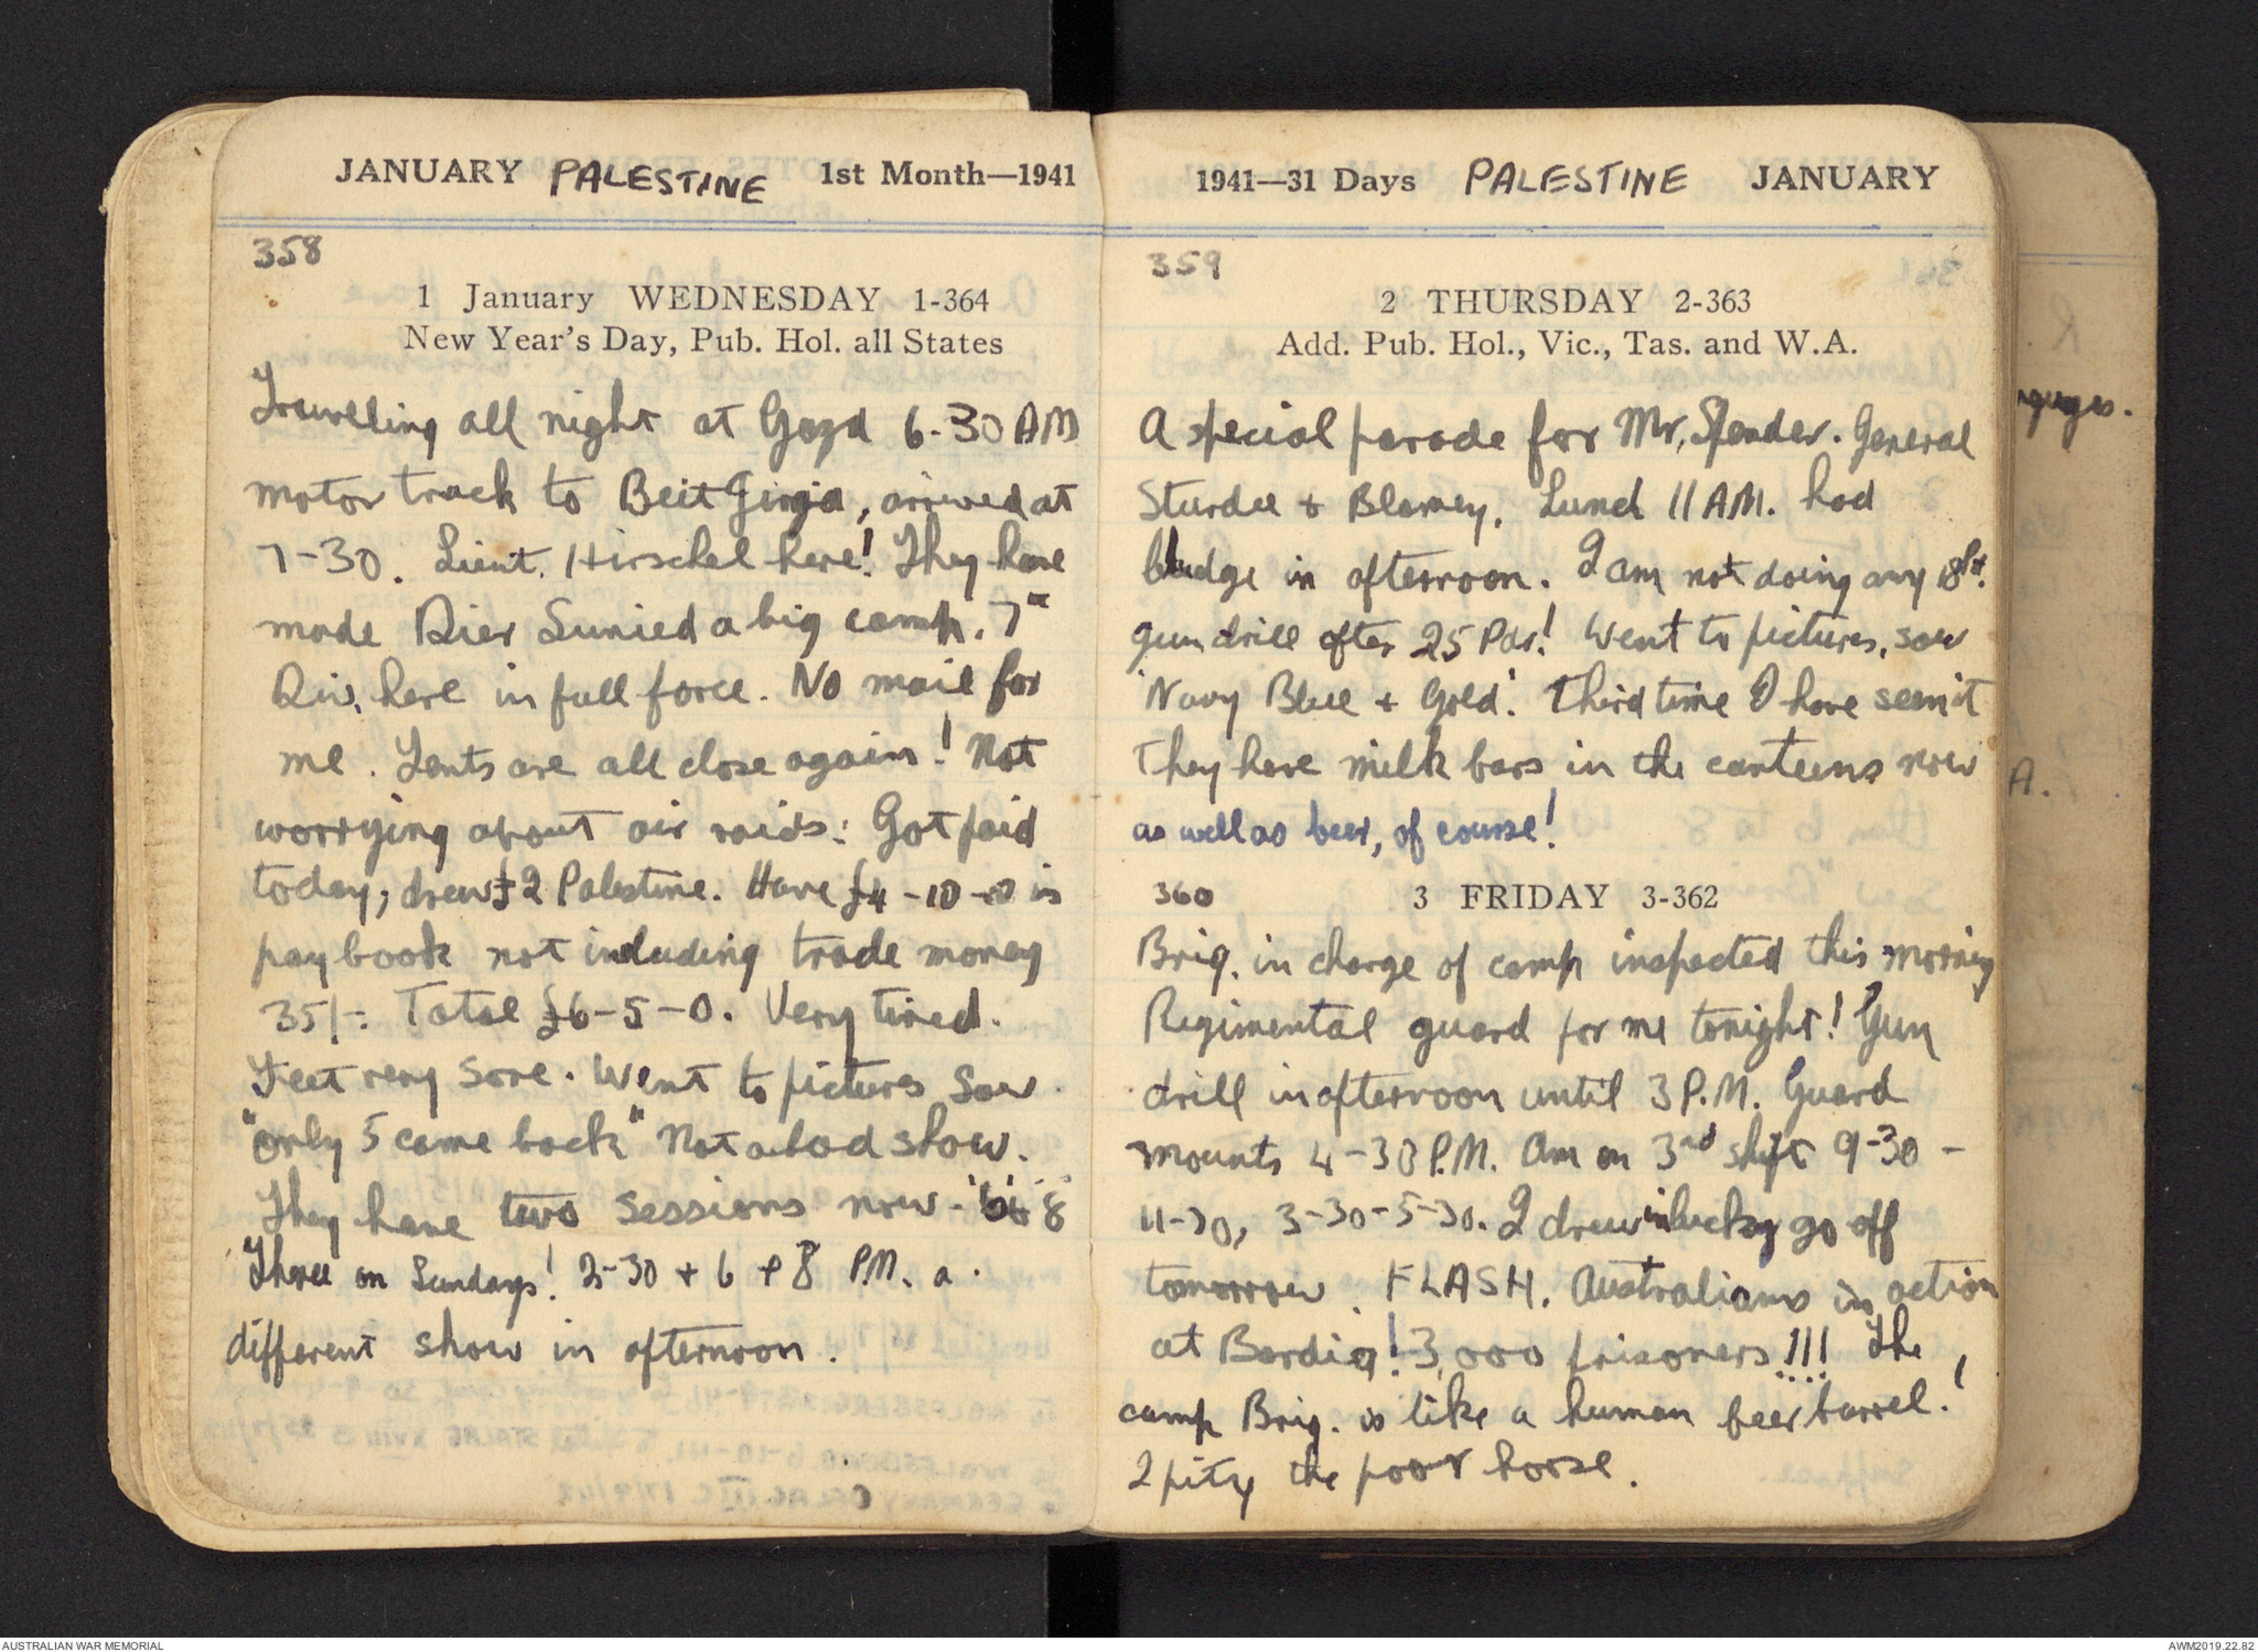 JANUARY PALESTINE 1st Month—1941
358
1 January WEDNESDAY 1-364
New Year's Day, Pub. Hol. all States
Travelling all night at Gaza 6-30 AM
motor track to Beit Jirja, arrived at
7-30. Lieut. Hirschel here! They have
made Dier Sunied a big camp. 7th
Div. here in full force. No mail for
me. Tents are all close again! Not
worrying about air raids. Got paid
today; drew £2 Palestine. Have £4-10-0 in
paybook not including trade money
35/-. Total £6-5-0. Very tired.
Feet very sore. Went to pictures saw
"only 5 came back" Not a bad show.
They have two sessions now. 6 8
Three on Sundays! 2-30 + 6 + 8 P.M. a
different show in afternoon.
1941—31 Days PALESTINE JANUARY
359
2 THURSDAY 2-363
Add. Pub. Hol., Vic., Tas. and W.A.
A special parade for Mr. Spender. General
Sturdee + Blamey. Lunch 11 AM. had
bludge in afternoon. I am not doing any 18Pr.
gun drill after 25 Pdr! Went to pictures, saw
'Navy Blue + Gold'. Third time I have seen it
They have milk bars in the canteens now
as well as beer, of course!
360
3 FRIDAY 3-362
Brig. in charge of camp inspected this morning
Regimental guard for me tonight! Gun
drill in afternoon until 3 P.M. Guard
mounts 4-30 P.M. Am on 3rd shift 9-30 -
11-30, 3-30-5-30. I drew in lucky go off
tomorrow. FLASH. Australians in action
at Bardia! 3,000 prisoners!!! The
camp Brig. is like a human beer barrel!
I pity the poor horse.
A.
AUSTRALIAN WAR MEMORIAL
AWM2019.22.82